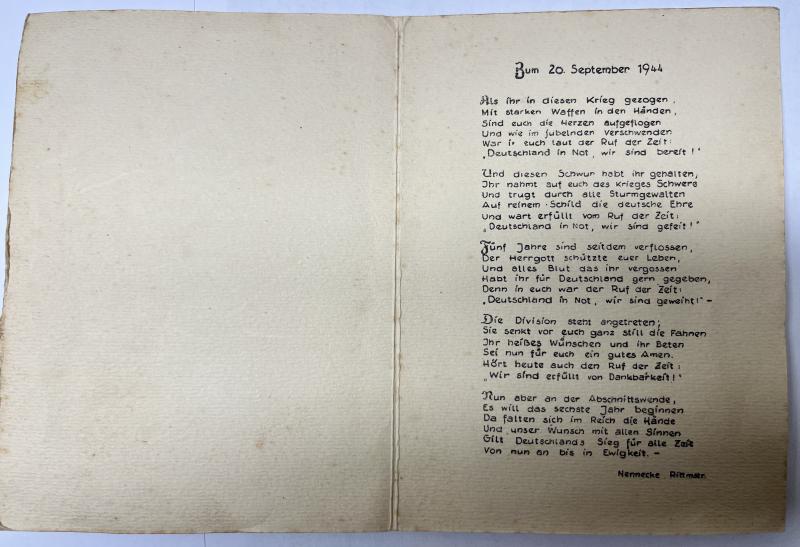 Zum 20. September 1944
Als ihr in diesen Krieg gezogen,
Mit starken Waffen in den Händen,
Sind euch die Herzen aufgeflogen
Und wie im jubelnden Verschwenden
War in euch laut der Ruf der Zeit:
„Deutschland in Not, wir sind bereit!"
Und diesen Schwur habt ihr gehalten,
Ihr nahmt auf euch des Krieges Schwere
Und trugt durch alle Sturmgewalten
Auf reinem Schild die deutsche Ehre
Und wart erfüllt vom Ruf der Zeit:
„Deutschland in Not, wir sind gefeit!"
Fünf Jahre sind seitdem verflossen,
Der Herrgott schützte euer Leben,
Und alles Blut das ihr vergossen
Habt ihr für Deutschland gern gegeben,
Denn in euch war der Ruf der Zeit:
„Deutschland in Not, wir sind geweiht!" –
Die Division steht angetreten;
Sie senkt vor euch ganz still die Fahnen
Ihr heißes Wünschen und ihr Beten
Sei nun für euch ein gutes Amen.
Hört heute auch den Ruf der Zeit:
„Wir sind erfüllt von Dankbarkeit!"
Nun aber an der Abschnittswende,
Es will das sechste Jahr beginnen
Da falten sich im Reich die Hände
Und unser Wunsch mit allen Sinnen
Gilt Deutschlands Sieg für alle Zeit
Von nun an bis in Ewigkeit. –
Nennecke Rittmstr.